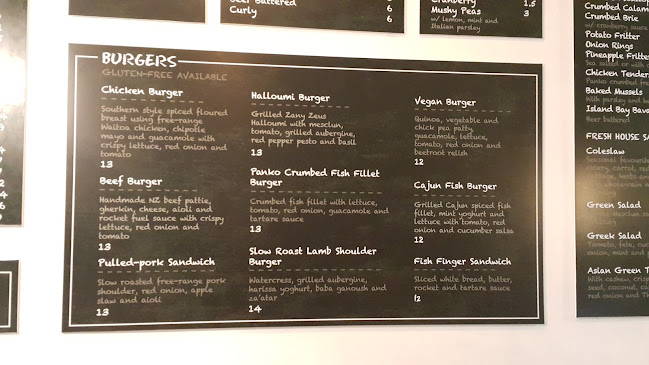 Beer Battered 6
Curly 6
Cranberry 1.5
Mushy Peas 3
w/ lemon, mint and
Italian parsley
BURGERS
GLUTEN-FREE AVAILABLE
Chicken Burger
Southern style spiced floured
breast using free-range
Waitoa chicken, chipotle
mayo and guacamole with
crispy lettuce, red onion and
tomato
13
Beef Burger
Handmade NZ beef pattie,
gherkin, cheese, aioli and
rocket fuel sauce with crispy
lettuce, red onion and
tomato
13
Pulled-pork Sandwich
Slow roasted free-range pork
shoulder, red onion, apple
slaw and aioli
13
Halloumi Burger
Grilled Zany Zeus
Halloumi with mesclun,
tomato, grilled aubergine,
red pepper pesto and basil
13
Panko Crumbed Fish Fillet
Burger
Crumbed fish fillet with lettuce,
tomato, red onion, guacamole and
tartare sauce
13
Slow Roast Lamb Shoulder
Burger
Watercress, grilled aubergine,
harissa yoghurt, baba ganoush and
za'atar
14
Vegan Burger
Quinoa, vegetable and
chick pea patty,
guacamole, lettuce,
tomato, red onion and
beetroot relish
12
Cajun Fish Burger
Grilled Cajun spiced fish
fillet, mint yoghurt and
lettuce with tomato, red
onion and cucumber salsa
12
Fish Finger Sandwich
Sliced white bread, butter,
rocket and tartare sauce
12
Crumbed Calam
Crumbed Brie
w/ cranberry sauce
Potato Fritter
Onion Rings
Pineapple Fritter
Sea salted or with
Chicken Tender
Panko crumbed
Baked Mussels
With parsley and
Island Bay Bav
Beer battered
FRESH HOUSE SA
Coleslaw
Seasonal favourit
celery, carrot, red
Green Salad
Greek Salad
Tomato, feta, cuc
onion, mint and
Asian Green T
With cashew, crisp
seed, coconut, ca
red onion and Th